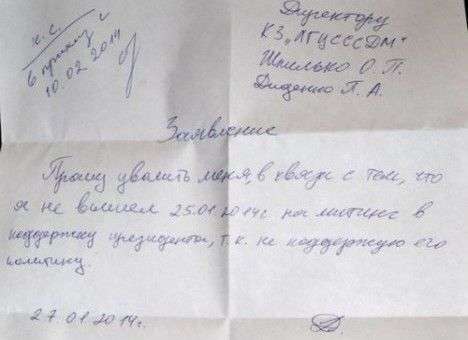 к. с.
в приказ
10.02.2014
Директору
КЗ „ЛГЦСССДМ"
Шпилько О. П.
Диденко П. А.
Заявление
Прошу уволить меня, в связи с тем, что
я не вышел 25.01.2014г. на митинг в
поддержку президента, т.к. не поддержую его
политику.
27.01.2014г.